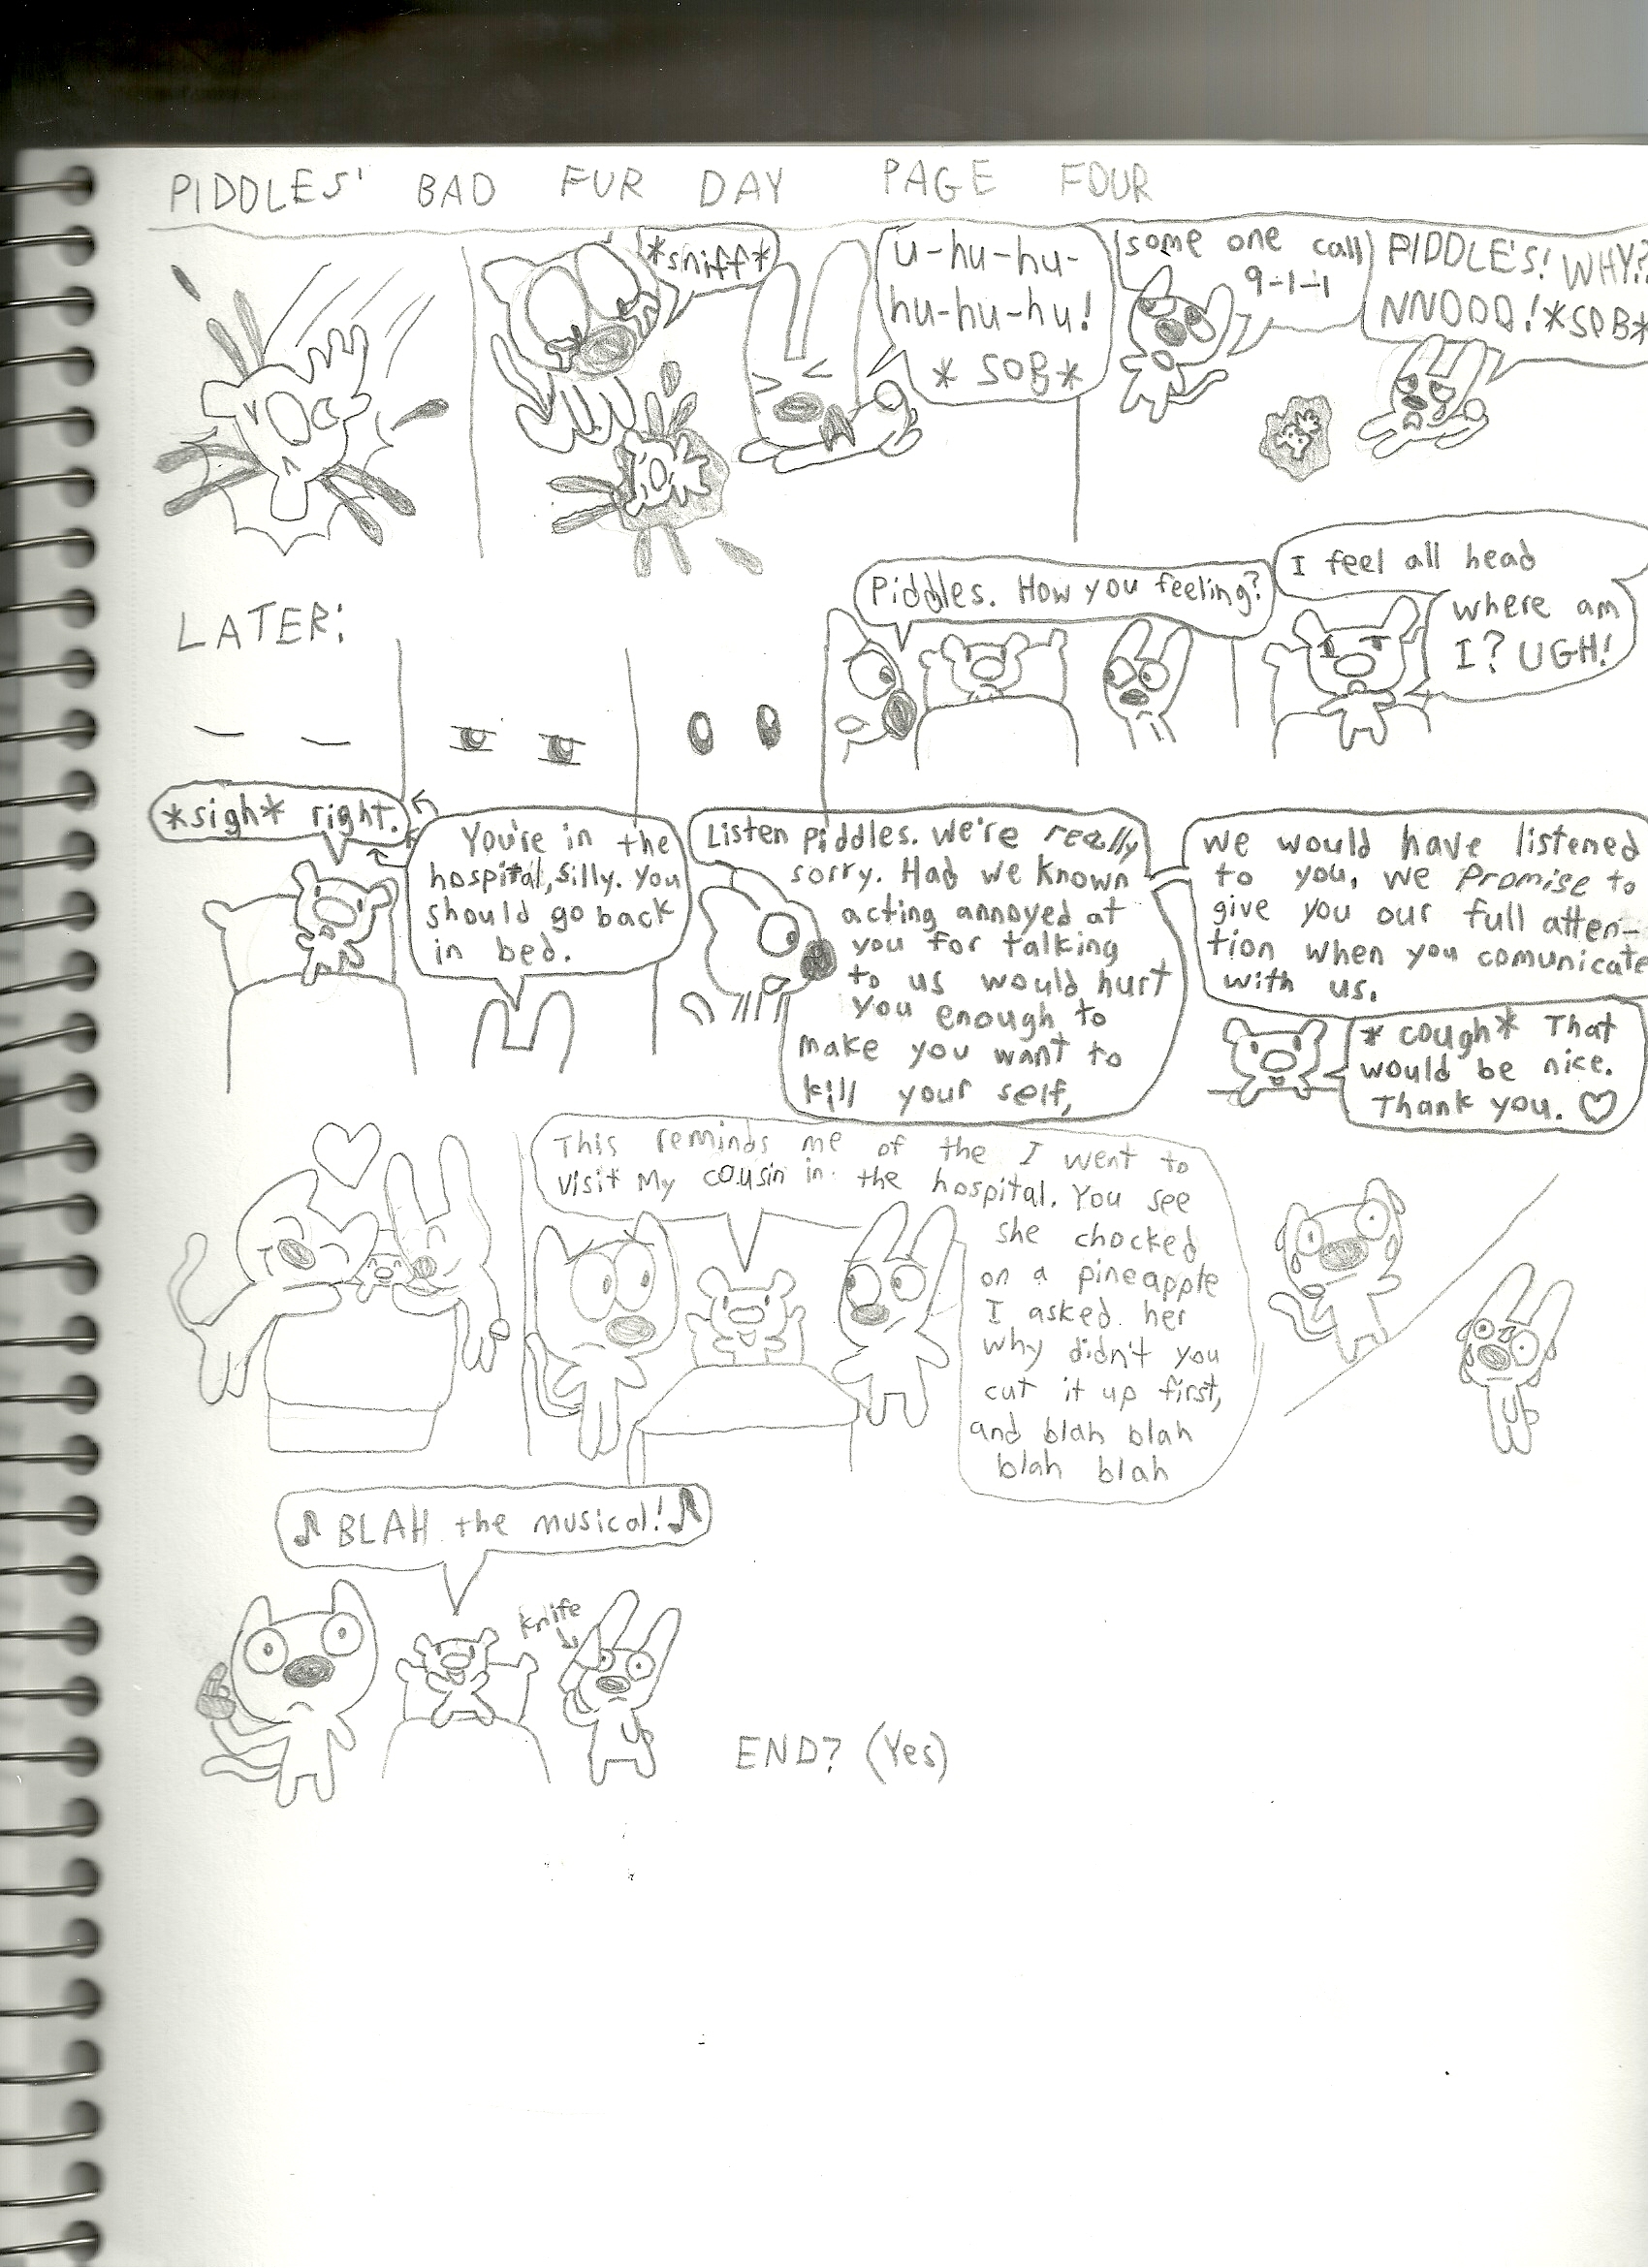 PIDDLES' BAD FUR DAY PAGE FOUR
*sniff*
U-hu-hu-
hu-hu-hu!
* SOB *
some one call
9-1-1
PIDDLE'S! WHY?
NNOOO! *SOB*
LATER:
Piddles. How you feeling?
I feel all head
where am
I? UGH!
*sigh* right.
You're in the
hospital, silly. You
should go back
in bed.
Listen Piddles. We're really
sorry. Had we known
acting annoyed at
you for talking
to us would hurt
you enough to
make you want to
kill your self,
we would have listened
to you. We promise to
give you our full atten-
tion when you comunicate
with us.
* cough* That
would be nice.
Thank you. ♡
This reminds me of the I went to
visit my cousin in the hospital. You see
she chocked
on a pineapple
I asked her
why didn't you
cut it up first,
and blah blah
blah blah
♪ BLAH the musical! ♪
knife
END? (Yes)